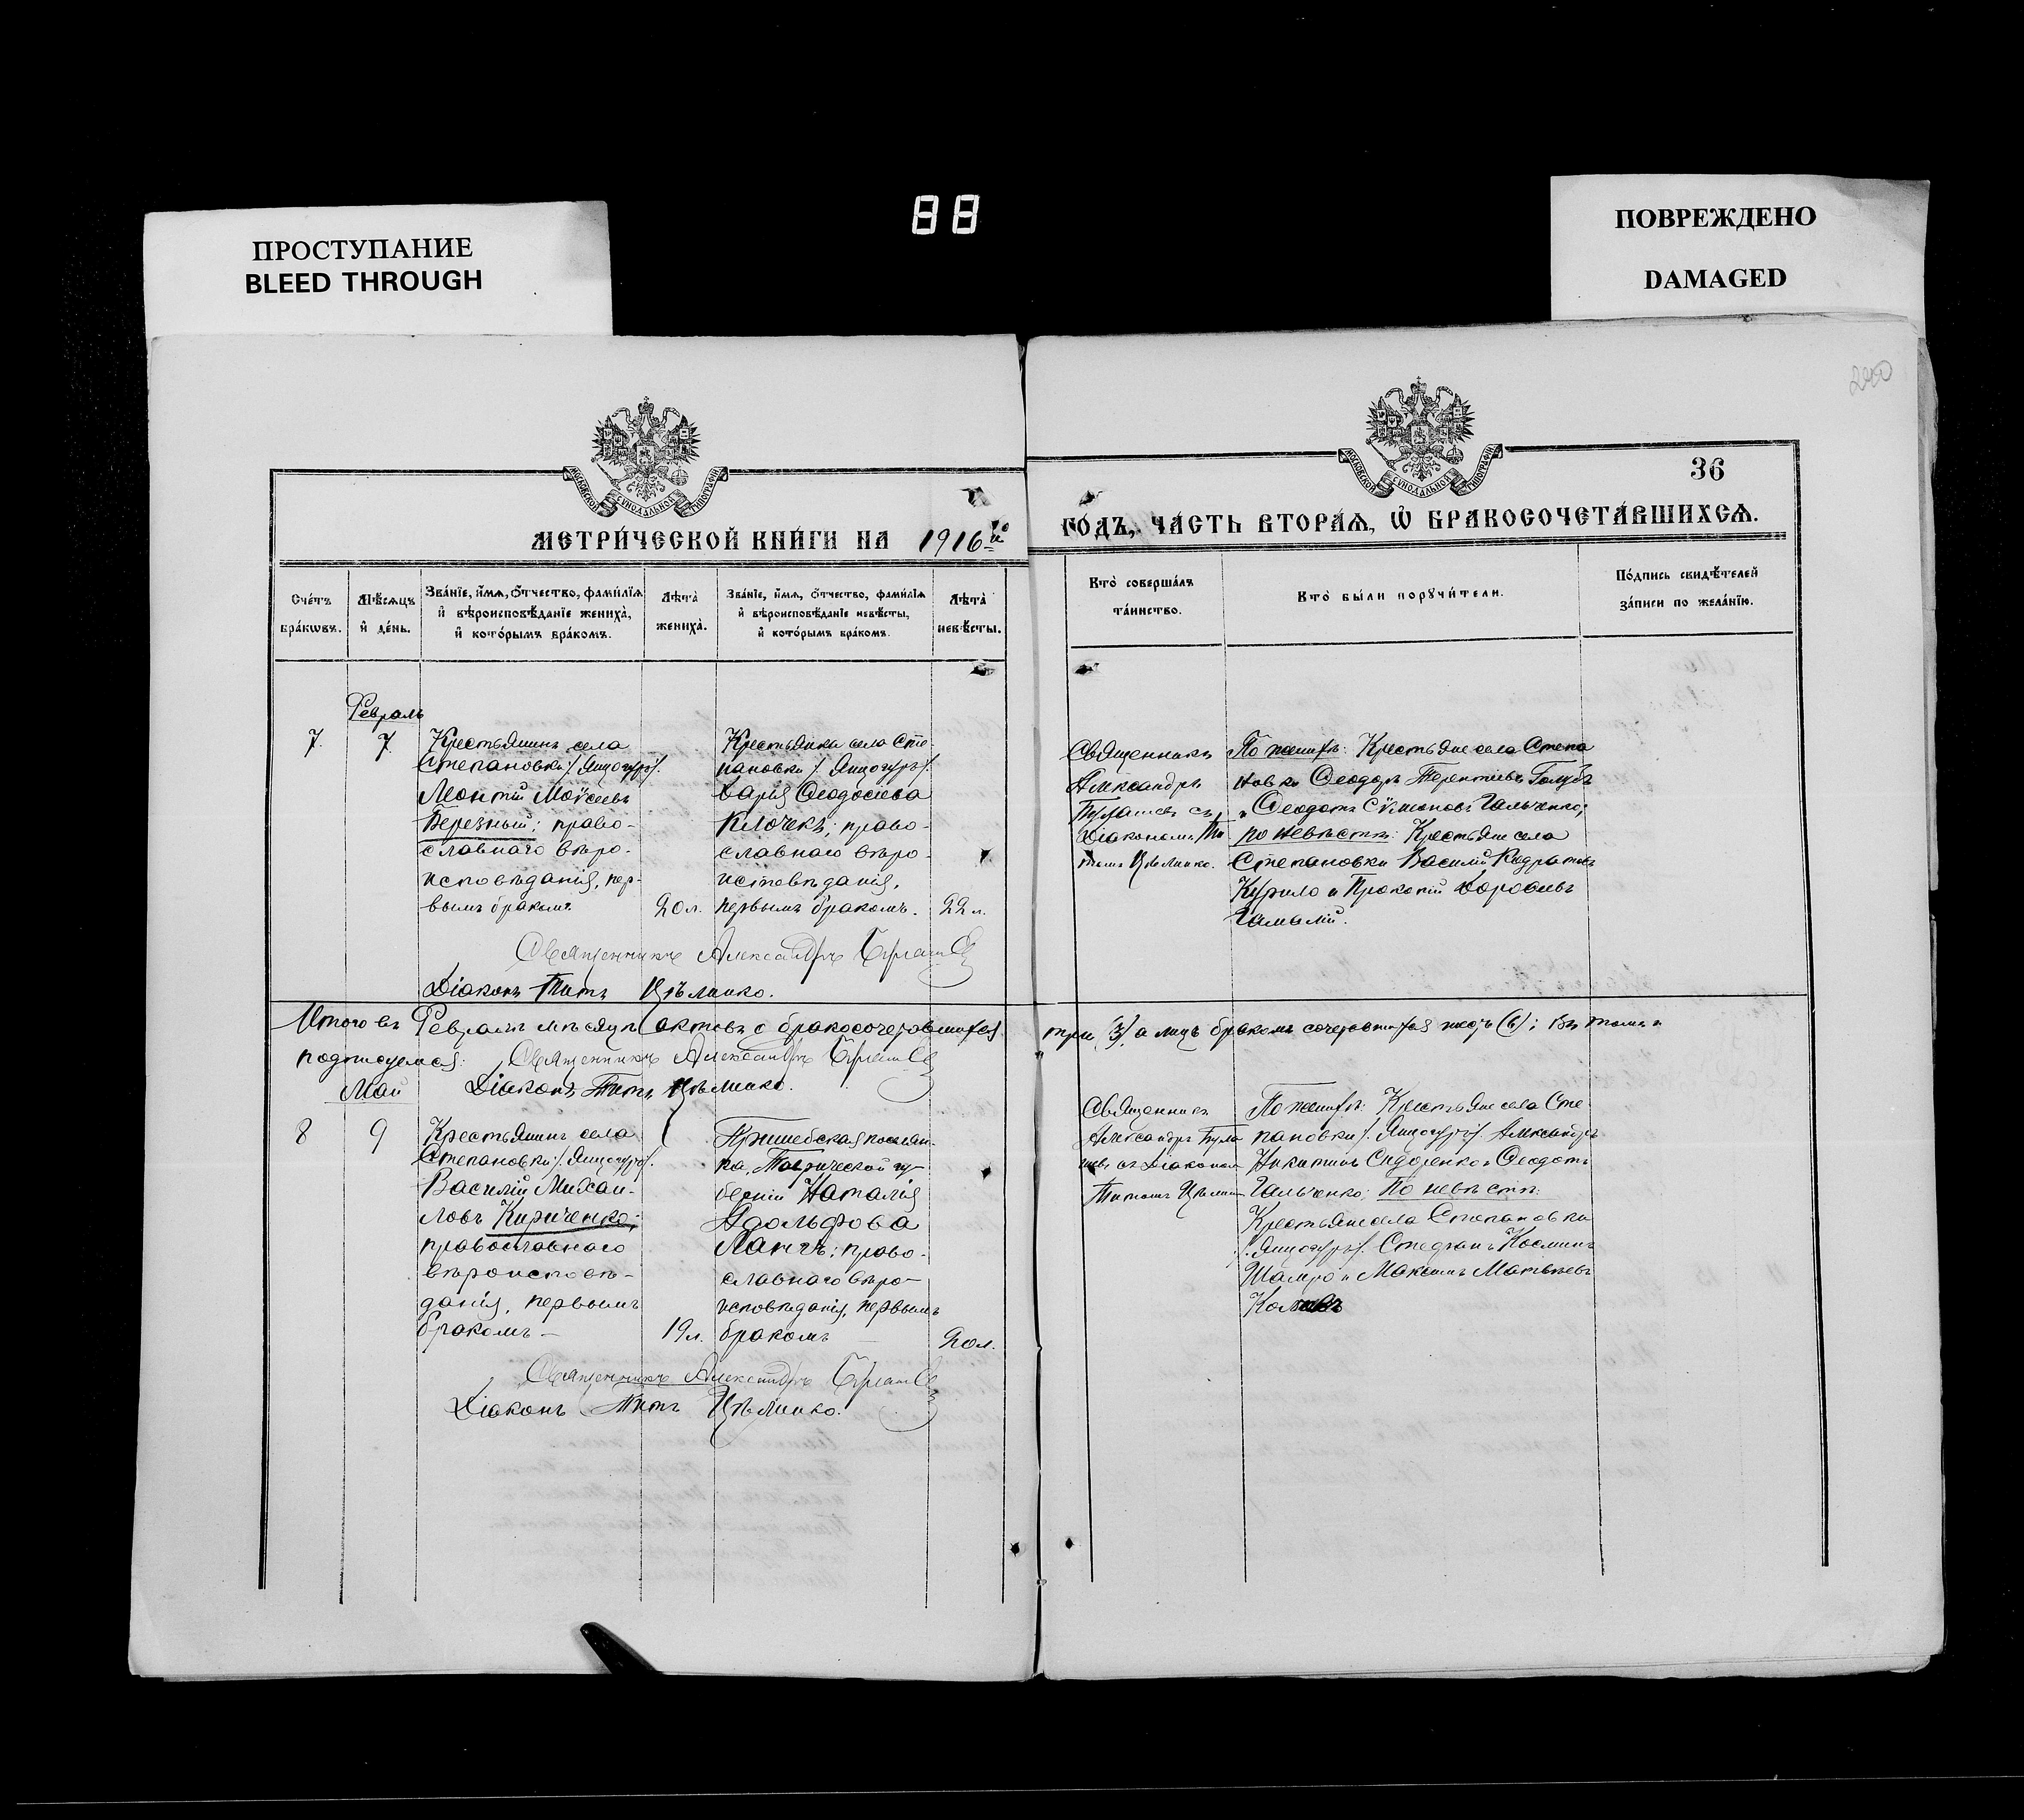 88
ПРОСТУПАНИЕ
BLEED THROUGH
ПОВРЕЖДЕНО
DAMAGED
240
МОСКОВСКОЙ СѴНОДАЛЬНОЙ ТИПОГРАФІИ
МОСКОВСКОЙ СѴНОДАЛЬНОЙ ТИПОГРАФІИ
36
МЕТРИ́ЧЕСКОЙ КНИ́ГИ НА 1916го
ГО́ДЪ, ЧА́СТЬ ВТОРА́Ѧ, Ѽ БРАКОСОЧЕТА́ВШИХСѦ.
Сче́тъ бра́кѡвъ.
Мѣ́сѧцъ и҆ де́нь.
Зва́нїе, и҆́мѧ, о҆́тчество, фами́лїѧ и҆ вѣроисповѣ́данїе жениха̀, и҆ кото́рымъ бра́комъ.
Лѣта̀ жениха̀.
Зва́нїе, и҆́мѧ, о҆́тчество, фами́лїѧ и҆ вѣроисповѣ́данїе невѣ́сты, и҆ кото́рымъ бра́комъ.
Лѣта̀ невѣ́сты.
Кто̀ соверша́лъ та́инство.
Кто̀ бы́ли порꙋчи́тели.
По́дпись свидѣ́телей за́писи по жела́нїю.
Февраль
7.
7
Крестьянинъ села
Степановки /. Яцогуръ/.
Монтій Моѵсеевъ
Березный; право-
славнаго вѣро-
исповѣданія, пер-
вымъ бракомъ
20 л.
Крестьянка села Сте-
пановки /. Яцогуръ/.
Дарія Ѳеодосіева
Клочекъ; право-
славнаго вѣро-
исповѣданія,
первымъ бракомъ.
22 л.
Священникъ
Александръ
съ
Діакономъ Ти-
томъ Цѣлинко.
По женихѣ: Крестьяне села Степа
новки Ѳеодоръ Терентіевъ Голубъ
и Ѳеодотъ Сѵмоновъ Гальченко;
по невѣстѣ: Крестьяне села
Степановки Василій
Курило и Прокопій Дороѳеевъ
Гамалій.
Священникъ Александръ
Діаконъ Титъ Цѣлинко.
Итого въ Февралѣ мѣсяцѣ актовъ о бракосочетавшихся
три (3) а лицъ бракомъ сочетавшихся шесть (6); въ томъ и
подписуемся: Священникъ Александръ
Діаконъ Титъ Цѣлинко.
Май
8
9
Крестьянинъ села
Степановки /. Яцогуръ/.
Василій Михаи-
ловъ Кириченко;
православнаго
вѣроисповѣ-
данія, первымъ
бракомъ –
19 л.
Пришебская поселян-
ка, Таврической гу-
берніи Наталія
Адольфова
Лангъ; право-
славнаго вѣро-
исповѣданія, первымъ
бракомъ –
20 л.
Священникъ
Александръ
съ Діакономъ
Титомъ
По женихѣ: Крестьяне села Сте-
пановки /. Яцогуръ/. Александръ
Никитинъ Сидоренко и Ѳеодотъ
Гальченко; По невѣстѣ:
Крестьяне села Степановки
/. Яцогуръ/. Стефанъ Косминъ
и Максимъ Матвѣевъ
Священникъ Александръ
Діаконъ Титъ Цѣлинко.